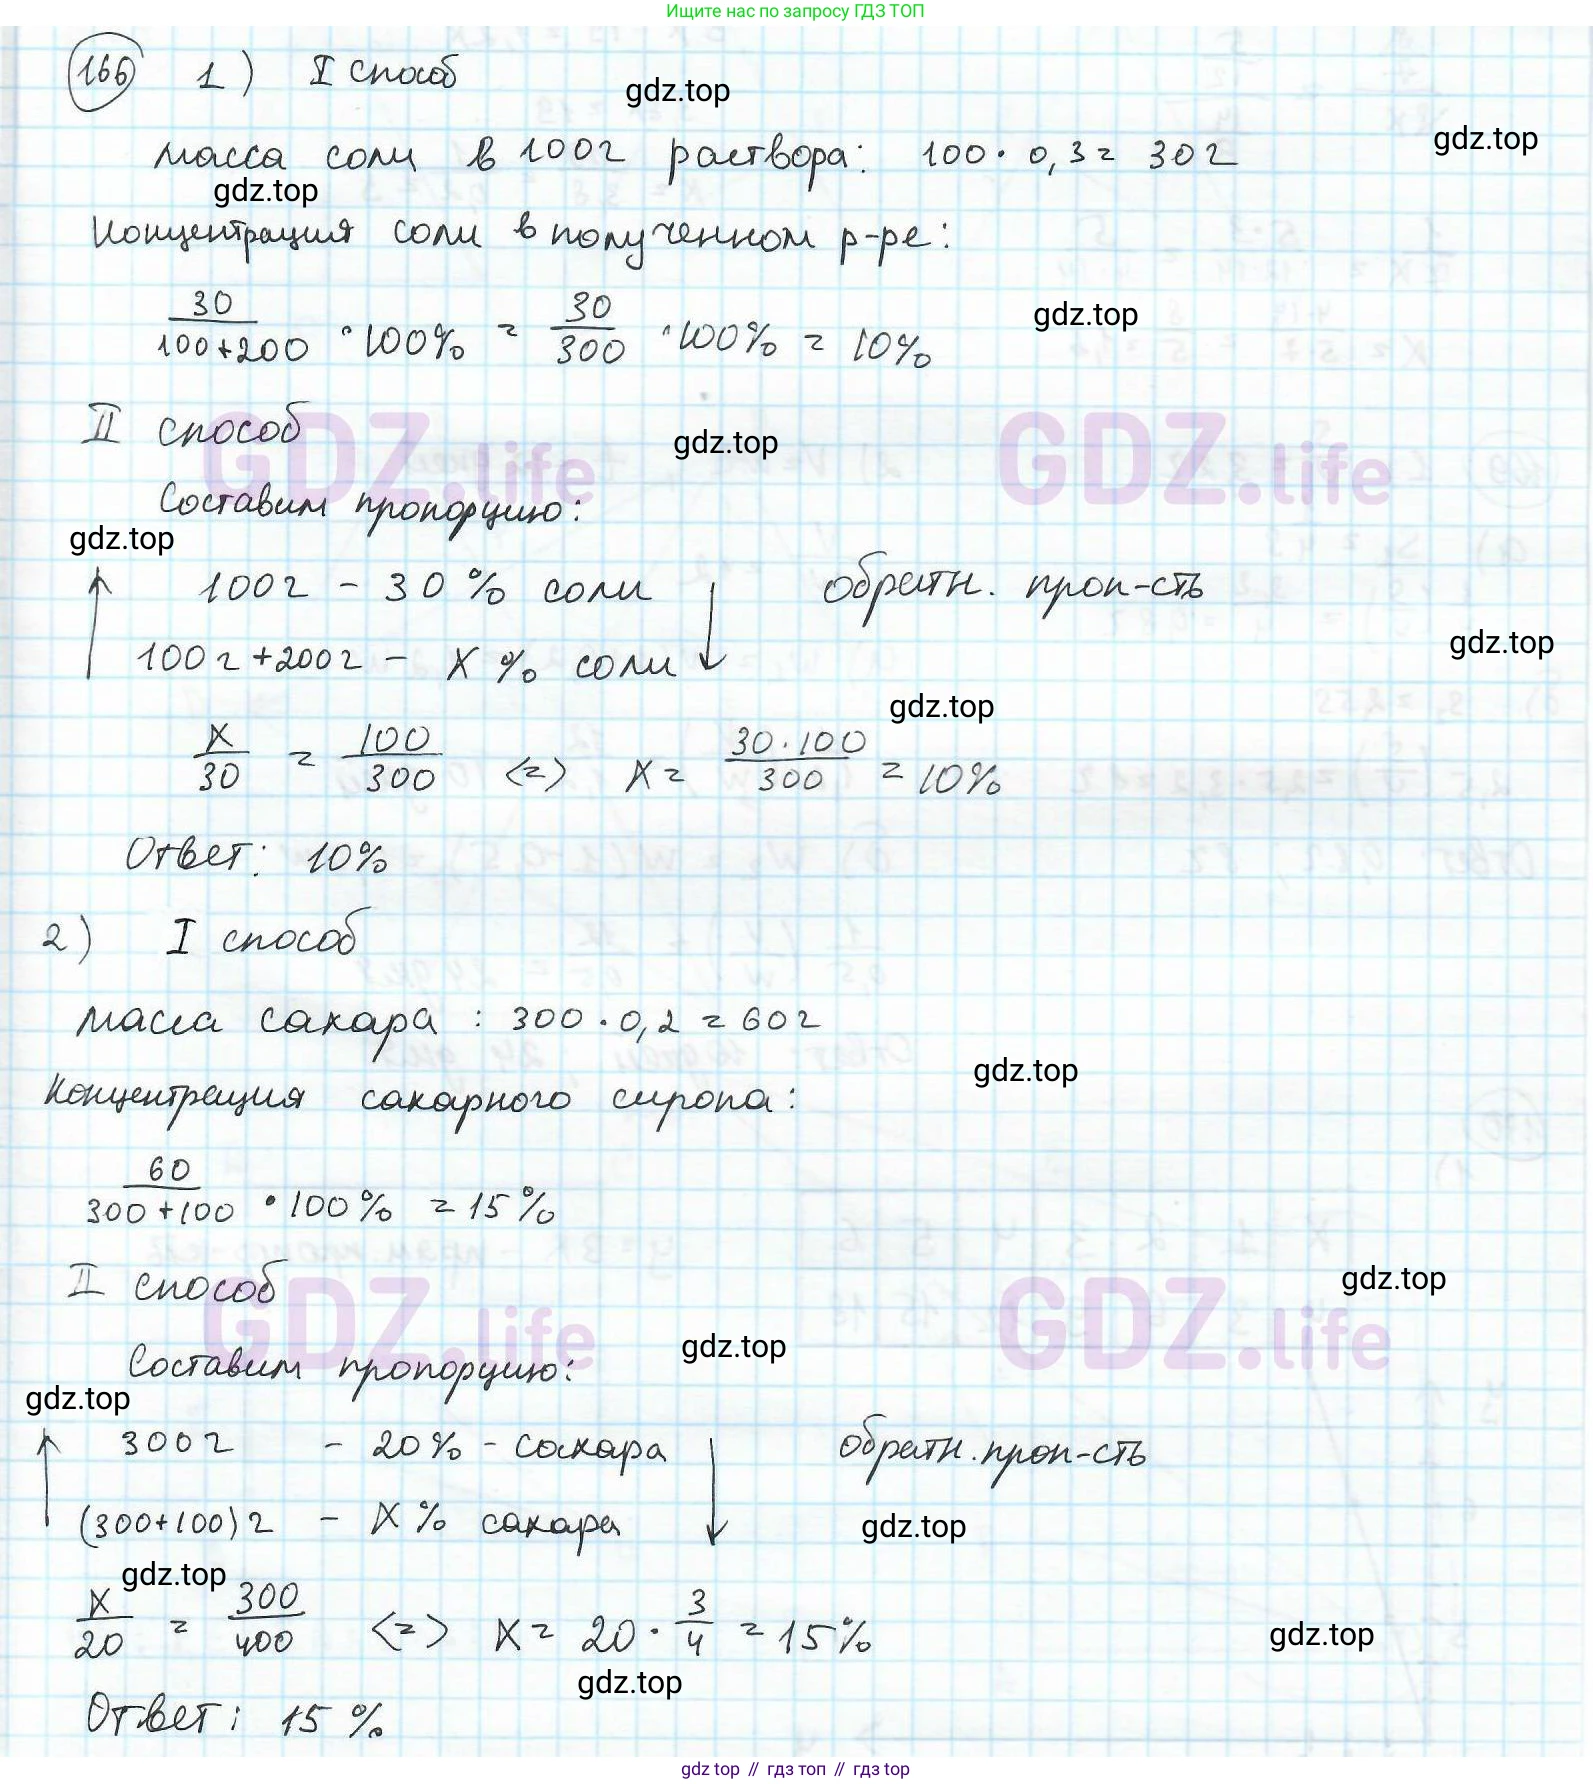 Ищите нас по запросу ГДЗ ТОП
166 1) I способ
gdz.top
gdz.top
масса соли в 100г раствора: 100 · 0,3 = 30г
gdz.top
Концентрация соли в полученном р-ре:
30/(100+200) · 100% = 30/300 · 100% = 10%
gdz.top
II способ
GDZ.life GDZ.life
gdz.top
Составим пропорцию:
gdz.top
100г - 30% соли обратн. проп-сть
gdz.top
100г+200г - X% соли
gdz.top
X/30 = 100/300 <=> X = 30·100/300 = 10%
Ответ: 10%
2) I способ
масса сахара: 300 · 0,2 = 60г
gdz.top
Концентрация сахарного сиропа:
60/(300+100) · 100% = 15%
II способ
gdz.top
GDZ.life GDZ.life
gdz.top
Составим пропорцию:
gdz.top
300г - 20% - сахара обратн. проп-сть
(300+100)г - X% сахара
gdz.top
gdz.top
X/20 = 300/400 <=> X = 20 · 3/4 = 15%
gdz.top
gdz.top
Ответ: 15%
gdz top // гдз топ // гдз top